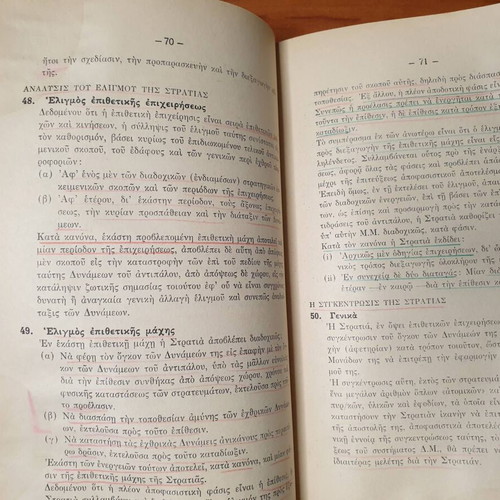 — 70 —
ἤτοι τὴν σχεδίασιν, τὴν προπαρασκευὴν καὶ τὴν
τῆς.
ΑΝΑΛΥΣΙΣ ΤΟΥ ΕΛΙΓΜΟΥ ΤΗΣ ΣΤΡΑΤΙΑΣ
48. Ἑλιγμὸς ἐπιθετικῆς ἐπιχειρήσεως
Δεδομένου ὅτι ἡ ἐπιθετικὴ ἐπιχείρησις εἶναι σειρὰ
χῶν καὶ κινήσεων, ἡ σύλληψις τοῦ ἑλιγμοῦ ταύτης
τὸν καθορισμόν, βάσει κυρίως τοῦ ἐπιδιωκομένου τελικοῦ
μενικοῦ σκοποῦ, τοῦ ἐδάφους καὶ τῶν γενικῶν περὶ ἐχθροῦ
ροφοριῶν :
(α) Ἀφ' ἑνὸς μὲν τῶν διαδοχικῶν (ἐνδιαμέσων) στρατηγικῶν
κειμενικῶν σκοπῶν καὶ τῶν περιόδων τῆς ἐπιχειρήσεως.
(β) Ἀφ' ἑτέρου, δι' ἑκάστην περίοδον, τοὺς ἄξονας
σεως, τὴν κυρίαν προσπάθειαν καὶ τὴν διάταξιν τῶν
μεων.
Κατὰ κανόνα, ἑκάστη προβλεπομένη ἐπιθετικὴ μάχη ἀποτελεῖ
μίαν περίοδον τῆς ἐπιχειρήσεως, ἀποβλέπει δὲ αὕτη ἀπὸ
μὲν σκοποῦ εἰς τὴν καταστροφὴν τῶν ἐπὶ τοῦ πεδίου τῆς μάχης
ταύτης Δυνάμεων τοῦ ἀντιπάλου, ἀπὸ ἀπόψεως δὲ χώρου, εἰς
κατάληψιν ζωτικῆς σημασίας τοιούτου ἐφ' οὗ νὰ εἶναι συγχρόνως
δυνατὴ ἢ ἀναγκαία γενικὴ ἀλλαγὴ ἑλιγμοῦ καὶ συνεπῶς
ταξις τῶν Δυνάμεων.
49. Ἑλιγμὸς ἐπιθετικῆς μάχης
Ἐν ἑκάστῃ ἐπιθετικῇ μάχῃ ἡ Στρατιὰ ἀποβλέπει διαδοχικῶς,
(α) Νὰ φέρῃ τὸν ὄγκον τῶν Δυνάμεών της εἰς ἐπαφὴν μὲ
τῶν Δυνάμεων τοῦ ἀντιπάλου, ὑπὸ τὰς μᾶλλον
διὰ τὴν ἐπίθεσιν συνθήκας ἀπὸ ἀπόψεως χώρου, χρόνου
φυσικῆς καταστάσεως τῶν στρατευμάτων, ἐκτελοῦσα πρὸς
το προέλασιν.
(β) Νὰ διασπάσῃ τὴν τοποθεσίαν ἀμύνης τῶν ἐχθρικῶν
ων, ἐκτελοῦσα πρὸς τοῦτο ἐπίθεσιν.
(γ) Νὰ καταστήσῃ τὰς ἐχθρικὰς Δυνάμεις ἀνικάνους πρὸς
ρω δρᾶσιν, ἐκτελοῦσα πρὸς τοῦτο καταδίωξιν.
Ἑκάστη τῶν ἐνεργειῶν τούτων ἀποτελεῖ, κατὰ κανόνα, καὶ μίαν
σιν τῆς ἐπιθετικῆς μάχης τῆς Στρατιᾶς.
Δεδομένου ὅτι ἡ πλέον ἀποφασιστικὴ φάσις εἶναι ἡ
— 71 —
πηρέτησιν τοῦ σκοποῦ αὐτῆς, δηλαδὴ πρὸς διάσπασιν
τοποθεσίας. Ἐξ ἄλλου, ἡ πλέον ἀποδοτικὴ φάσις εἶναι
Συνεπῶς ἡ προέλασις πρέπει νὰ ἐνεργῆται κατὰ
νοῦντα τὴν ἐπίθεσιν, ἡ δὲ ἐπίθεσις κατὰ τρόπον
καταδίωξιν.
Τὸ συμπέρασμα ἐκ τῶν ἀνωτέρω εἶναι ὅτι ὁ
πρὸς διεξαγωγὴν τῆς μάχης εἶναι εἷς
Συλλαμβάνεται οὗτος πρὸ τῆς
σεως, ἀφορᾷ ὅλας τὰς φάσεις καὶ προβλέπει
μέχρι τῆς ἐπιτεύξεως ἀποφασιστικοῦ ἀποτελέσματος
Ἐπειδὴ ὅμως, ἐν τῇ ἐκτελέσει τοῦ ἑλιγμοῦ, αἱ
τῶν ἐνεργειῶν ἑκάστης ἐξαρτῶνται, ἐπὶ τῇ βάσει τῶν
ως, ὡς ἐπίσης καὶ παραμένουν ὑπὸ τὴν ἐπιρροὴν
τιδράσεων τοῦ ἀντιπάλου, ἡ Στρατιὰ καθορίζει
ὑπ' αὐτὴν Μ.Μ. διαδοχικῶς, κατὰ φάσιν.
Κατὰ τὸν κανόνα ἡ Στρατιὰ ἐκδίδει :
(α) Ἀρχικῶς μὲν ὁδηγίας ἐπιχειρήσεων, δι' ὧν
νικὸς τρόπος διεξαγωγῆς ὁλοκλήρου τῆς
(β) Ἐν συνεχείᾳ δὲ δύο διαταγάς : Μίαν
ἑτέραν —ἐν καιρῷ— διὰ τὴν ἐπίθεσιν
Η ΣΥΓΚΕΝΤΡΩΣΙΣ ΤΗΣ ΣΤΡΑΤΙΑΣ
50. Γενικὰ
Ἡ Στρατιά, ἐν ὄψει ἐπιθετικῆς ἐπιχειρήσεως
συγκεντροῦται εἰς τὸν χῶρον τὸν
(ἀφετηρίαν) κατὰ τρόπον τοιοῦτον, ὥστε
Μονάδων της νὰ ἐπιτρέπῃ τὴν ἐφαρμογὴν
μοῦ της.
Ἡ συγκέντρωσις αὕτη, ἐκτὸς τῶν στρατευμάτων
ἕνα μεγάλον ἀριθμὸν ὅπλων
πυρ/κῶν, ὑλικῶν καὶ ἐφοδίων, τὰ ὁποῖα εἶναι
καταστήσουν τὴν Στρατιὰν ἱκανὴν νὰ ἐπιτύχῃ
τῆς ἀποστολῆς της, ἀποφασιστικὰ ἀποτελέσματα.
κὴ ἔννοια τῆς συγκεντρώσεως ταύτης,
σεως τοῦ συστήματος Δ.Μ., θὰ πρέπει νὰ
ἰδιαιτέρας μελέτης διὰ τὴν Στρατιάν.